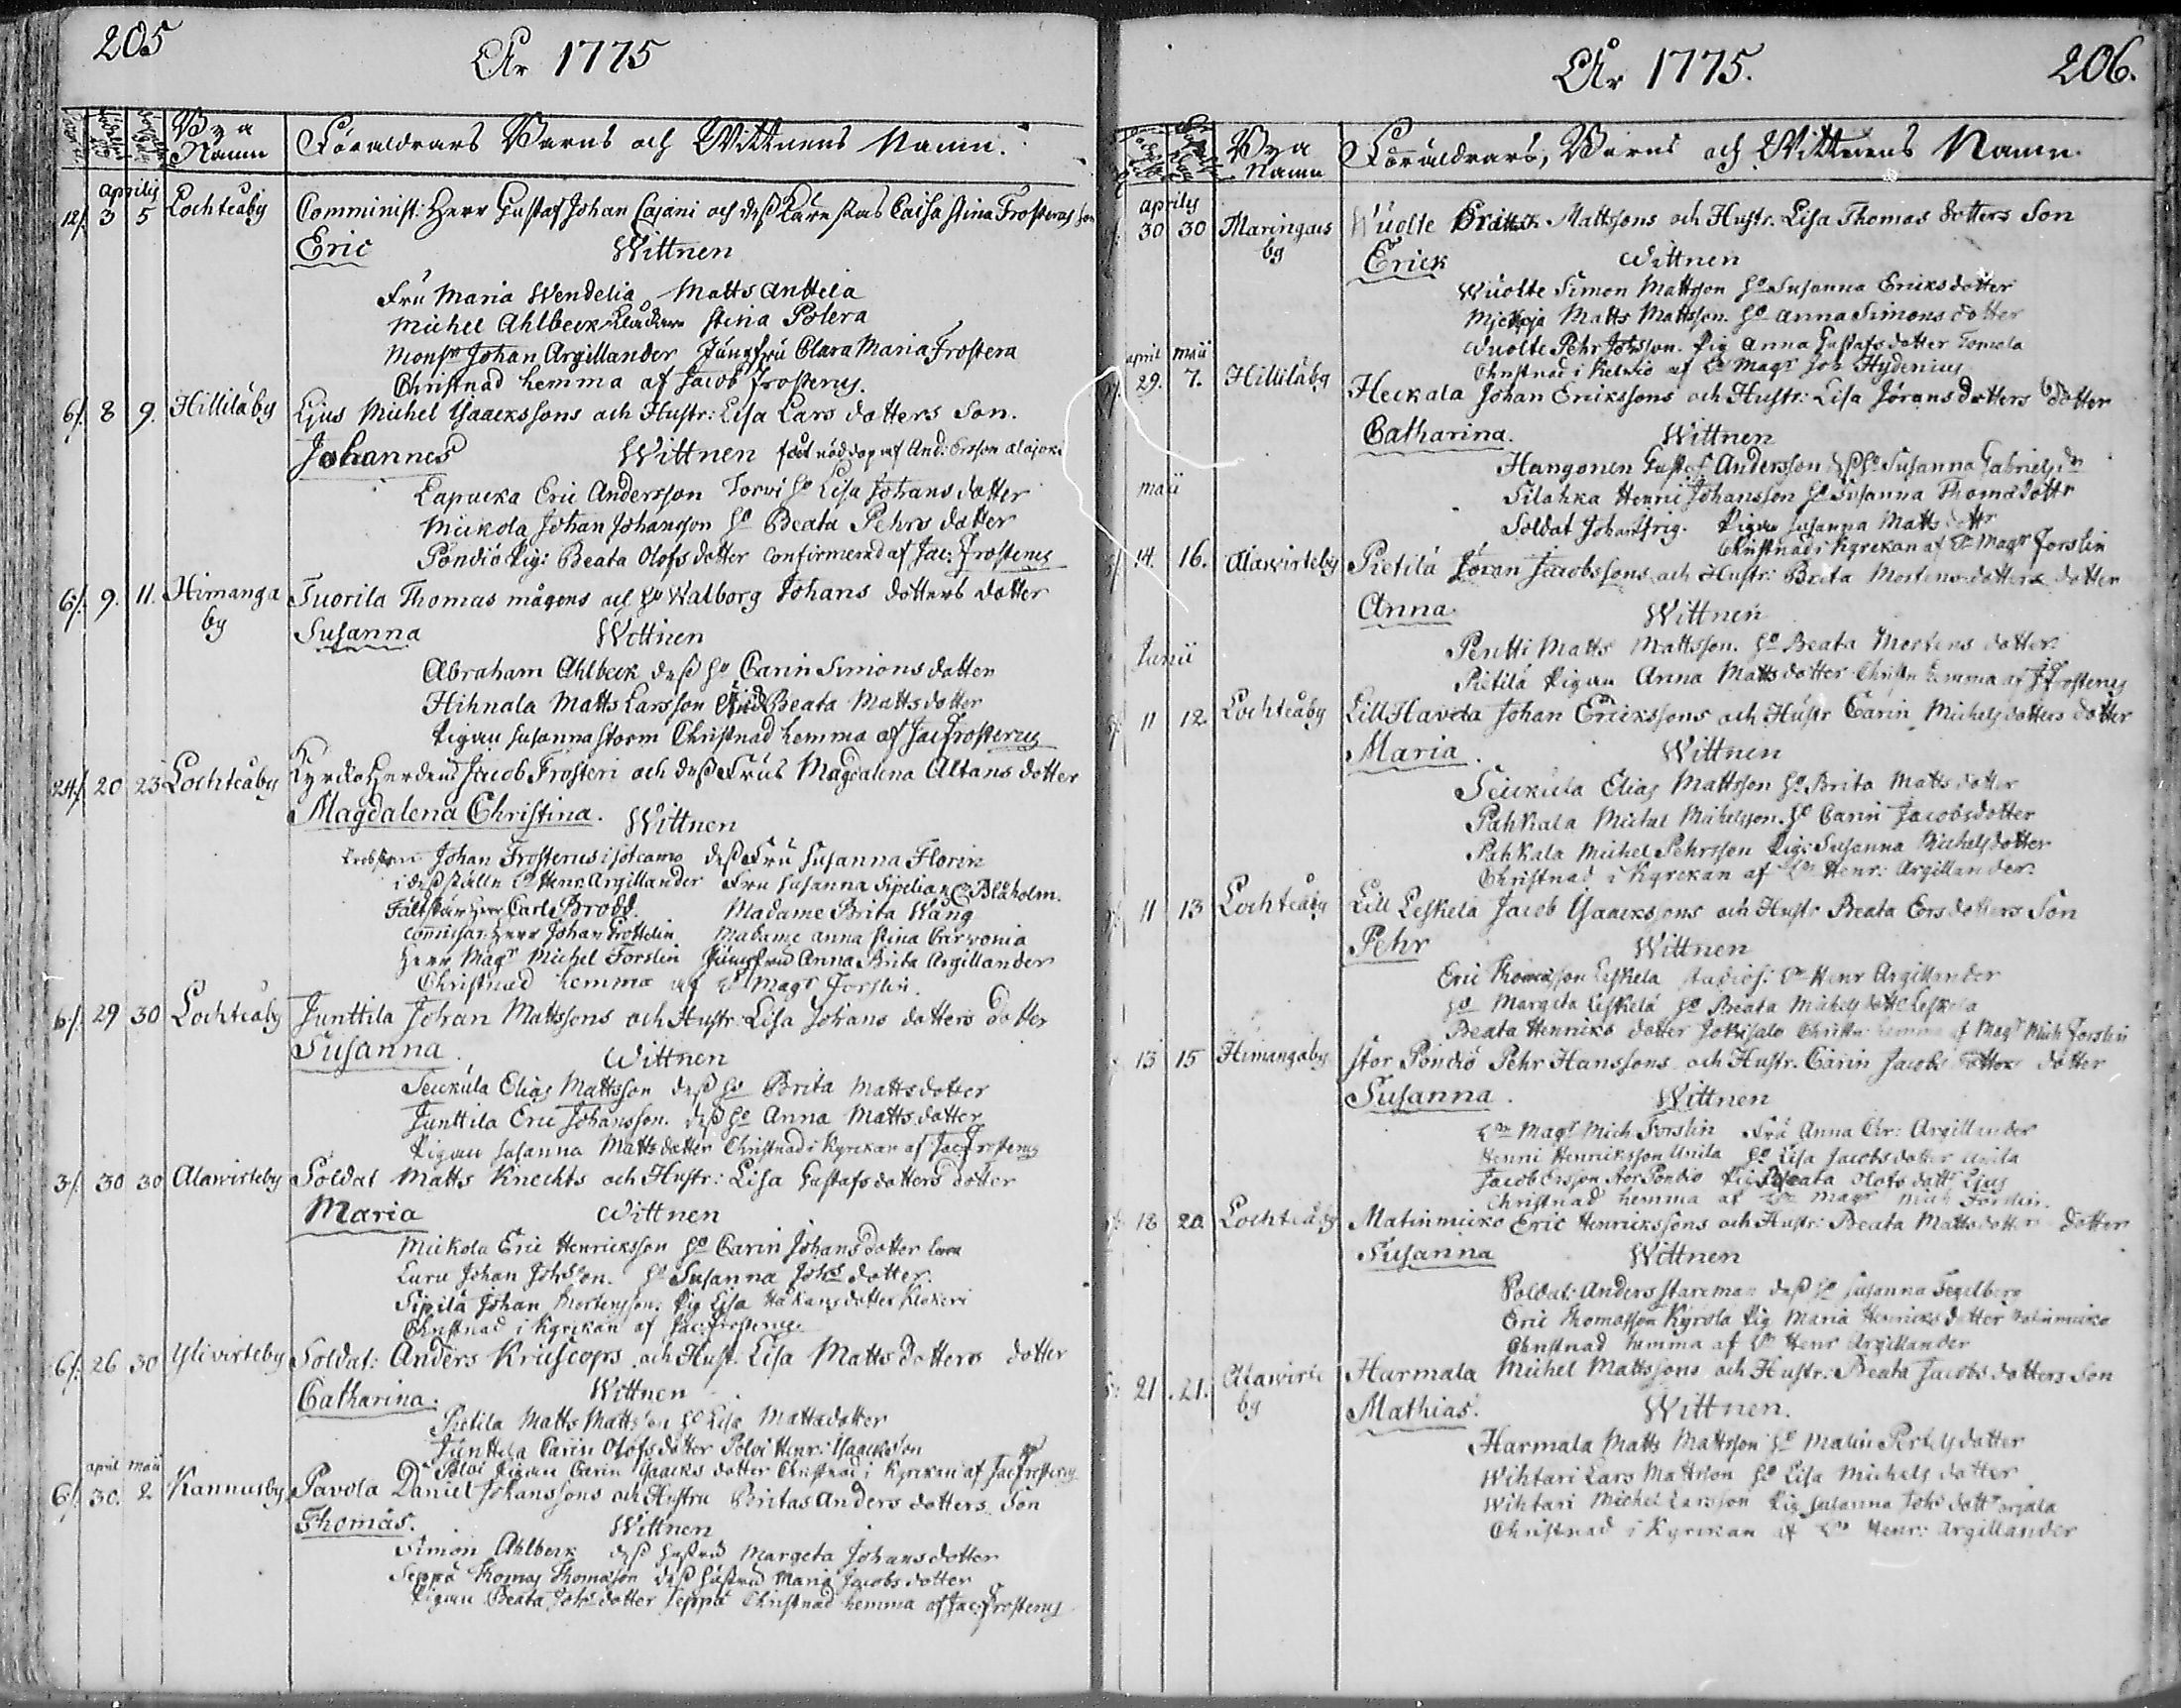 205
År 1775
Bya Namn
Föräldrars Barns och Wittnens Namn.
Aprilis
12/. 3 5 Lochteåby Comminist: Herr Gustaf Johan Cajani och dess Kära Caisa Stina Frosterus Son
Eric Wittnen
Fru Maria Wendelia Matts Anttila
Michel Ahlbeck Stina Polera
Monsr Johan Argillander Jungfru Clara Maria Frostera
Christnad hemma af Jacob Frosterus.
6/. 8 9. Hillilä by Ljus Michel Isaackssons och Hustr: Lisa Lars dotters Son.
Johannes Wittnen fådt nöddop af And: Ersson
Eric Andersson Torvi Ho Lisa Johans dotter
Mickola Johan Johansson Ho Beata Pehrs dotter
Pöndiö Pig: Beata Olofs dotter Confirmerad af Jac: Frosterus
6/. 9. 11. Himanga by Tuorila Thomas mågens och Ho Walborg Johans dotters dotter
Susanna Wittnen
Abraham Ahlbeck dess Ho Carin Simons dotter
Hihnala Matts Larsson Beata Matts dotter
Pigan Susanna Storm Christnad hemma af Jac Frosterus
24/. 20 23 Lochteåby Kyrkoherdens Jacob Frosteri och dess Frus Magdalena Altans dotter
Magdalena Christina. Wittnen
Probsten Johan Frosterus i Sotcamo dess Fru Susanna Florin
i dess ställe Hr Henr. Argillander Fru Susanna Sipelia C Blåholm.
Fältskär Herr Carl Brodd. Madame Brita Wång
Commissar: Herr Johan Madame Anna Stina
Herr Magr Michel Forslin Jungfru Anna Brita Argillander
Christnad hemma af Hr Magr Forslin.
6/. 29 30 Lochteåby Junttila Johan Mattssons och Hustr: Lisa Johans dotters dotter
Susanna. Wittnen
Elias Mattsson dess Ho Brita Mattsdotter
Junttila Eric Johansson. dess Ho Anna Matts dotter
Pigan Susanna Matts dotter Christnad i Kyrckan af Jac Frosterus
3/. 30 30 Alawirteby Soldat Matts Knechts och Hustr: Lisa Gustafs dotters dotter
Maria Wittnen
Mickola Eric Henricksson Ho Carin Johans dotter
Johan Johsson. Ho Susanna Johs dotter.
Sipilä Johan Mortensson. Pig Lisa Håkansdotter
Christnad i Kyrckan af Jac: Frosterus
6/. 26 30 Ylivirteby Soldat: Anders och Hust. Lisa Matts dotters dotter
Catharina. Wittnen
Pietila Matts Mattsson Ho Lisa Mattsdotter
Junttila Carin Olofsdotter Polvi Henr: Isaacksson
Polvi Pigan Carin Isaacks dotter Christnad i Kyrckan af Jac Frosterus
april Maii
6/. 30. 2 Kannusby Pavola Daniel Johanssons och Hustru Britas Anders dotters Son
Thomas. Wittnen
Simon Ahlbeck dess Hustru Margeta Johansdotter
Seppä Thomas Thomasson dess Hustru Maria Jacobs dotter
Pigan Beata Johs dotter Seppä Christnad hemma af Jac: Frosterus
År 1775.
206.
Bya Namn
Föräldrars, Barns och Wittnens Namn.
Aprilis
30 30 Maringais by Wuolte Mattssons och Hustr. Lisa Thomas dotters Son
Erick Wittnen
Wuolte Simon Mattsson Ho Susanna Ericksdotter
Matts Mattsson. Ho Anna Simons dotter
Wuolte Pehr Johsson. Pig Anna Gustafs dotter Tomola
Christnad i Kelviå af Hr Magr Joh Hydenius
april Maii
29. 7. Hillilåby Heckala Johan Erickssons och Hustr: Lisa Jörans dotters dotter
Catharina. Wittnen
Hangonen Gustaf Andersson dess Ho Susanna Gabriels dr
Silahka Henric Johansson Ho Susanna Thomædottr
Soldat Johan Frig. Pigan Susanna Matts dottr
Christnad i Kyrckan af Hr Magr Forslin
Maii
14. 16. Alawirteby Pietilä Jöran Jacobssons och Hustr: Brita Mortens dotters dotter
Anna. Wittnen
Pentti Matts Mattsson. Ho Beata Mortens dotter
Pietilä Pigan Anna Matts dotter Christn hemma af J Frosterus
Junii
11 12. Lochteåby Lill Havela Johan Erickssons och Hustr Carin Michelsdotters dotter
Maria. Wittnen
Elias Mattsson Ho Brita Matts dotter
Pahkala Michel Michelsson. Ho Carin Jacobsdotter
Pahkala Michel Pehrsson Pig: Susanna Michelsdotter
Christnad i Kyrckan af Hr Henr: Argillander.
11 13 Lochteåby Lill Leskelä Jacob Isaackssons och Hustr Beata Ersdotters Son
Pehr Wittnen
Eric Thomasson Leskela Studios: Hr Henr Argillander
Ho Margeta Leskelä Ho Beata Michelsdotter Leskela
Beata Henriks dotter Jokisalo Christn hemma af Magr Mich Forslin
13 15 Himangaby Stor Pöndiö Pehr Hanssons och Hustr. Carin Jacobs dotters dotter
Susanna. Wittnen
Hr Magr Mich Forslin Fru Anna Chr: Argillander
Henric Henricksson Unila Ho Lisa Jacobsdotter Unila
Jacob Ersson Stor Pöndiö Pig Beata Olofs dottr Ljus
Christnad hemma af Hr Magr Mich Forslin.
18 20. Lochteåby Matinmicko Eric Henrickssons och Hustr: Beata Mattsdotters dotter
Susanna Wittnen
Soldat: Anders Stareman dess Ho Susanna Segelberg
Eric Thomasson Kyrola Pig Maria Henricksdotter Matinmicko
Christnad hemma af Hr Henr Argillander
21. 21. Alawirte by Harmala Michel Mattssons och Hustr: Beata Jacobs dotters Son
Mathias. Wittnen.
Harmala Matts Mattsson Ho Malin Pertels dotter
Wihtari Lars Mattsson Ho Lisa Michels dotter
Wihtari Michel Larsson Pig Susanna Johs dottr
Christnad i Kyrckan af Hr Henr: Argillander